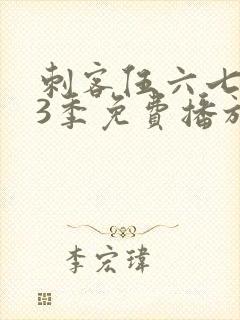 刺客伍六七
3季免費播放
李宏瑋